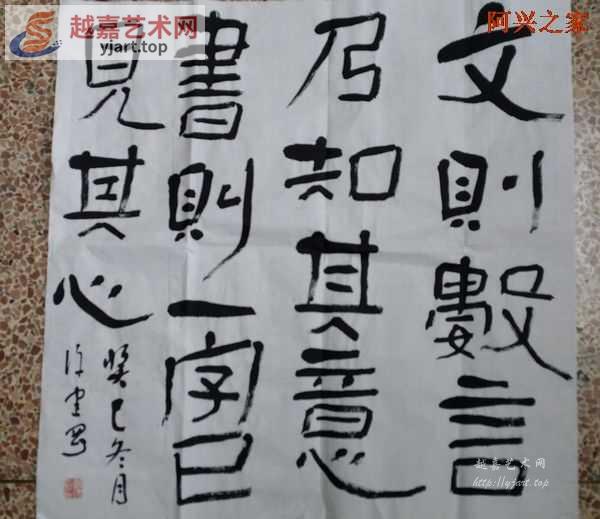 文則數言
乃知其意
書則一字已
見其心
癸巳冬月
越嘉艺术网
yjart.top
阿兴之家
越嘉艺术网
http://yjart.top